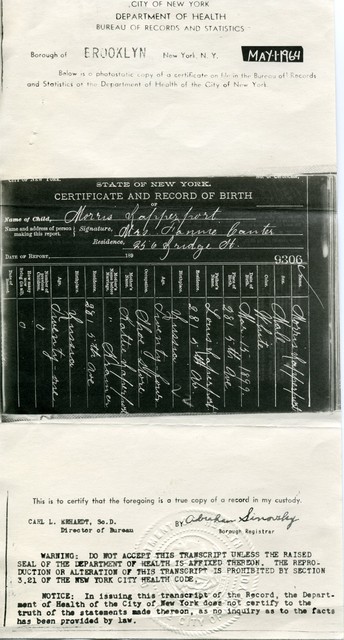 CITY OF NEW YORK
DEPARTMENT OF HEALTH
BUREAU OF RECORDS AND STATISTICS
Borough of BROOKLYN New York, N. Y. MAY-1-1964
Below is a photostatic copy of a certificate on file in the Bureau of Records
and Statistics of the Department of Health of the City of New York.
CITY OF NEW YORK.
STATE OF NEW YORK.
CERTIFICATE AND RECORD OF BIRTH
OF
Name of Child, Morris Sapperport
Name and address of person making this report. Signature, Mrs Fannie Canter
Residence, 256 Bridge St.
DATE OF REPORT, 189
9306
Sex. Male
Color. White
Date of Birth. Mar 15, 1892
Place of Birth. 281 5th Ave
Father's Name. Louis Saperport
Residence. 281 5th Av
Birthplace. Russia
Age. Twenty four
Occupation. Shoe Store
Residence. 281 5th Ave
Birthplace. Russia
Age. Twenty one
This is to certify that the foregoing is a true copy of a record in my custody.
CARL L. ERHARDT, Sc.D.
Director of Bureau
BY Abraham
Borough Registrar
WARNING: DO NOT ACCEPT THIS TRANSCRIPT UNLESS THE RAISED
SEAL OF THE DEPARTMENT OF HEALTH IS AFFIXED THEREON. THE REPRO-
DUCTION OR ALTERATION OF THIS TRANSCRIPT IS PROHIBITED BY SECTION
3.21 OF THE NEW YORK CITY HEALTH CODE.
NOTICE: In issuing this transcript of the Record, the Depart-
ment of Health of the City of New York does not certify to the
truth of the statements made thereon, as no inquiry as to the facts
has been provided by law.